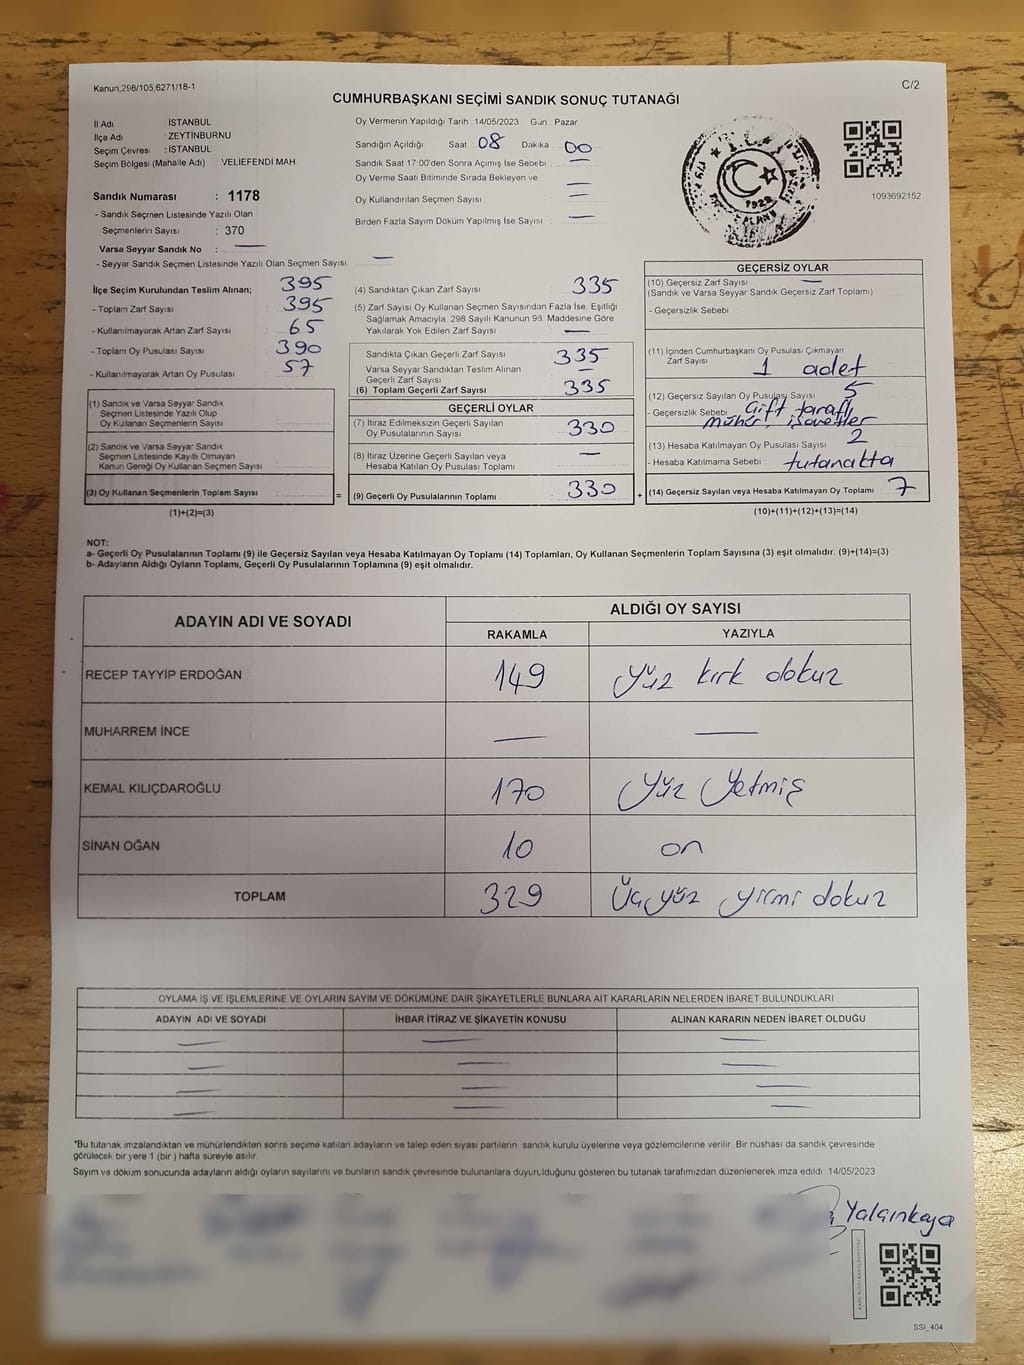 Kanun,298/105,6271/18-1
C/2
CUMHURBAŞKANI SEÇİMİ SANDIK SONUÇ TUTANAĞI
İl Adı : İSTANBUL
İlçe Adı : ZEYTİNBURNU
Seçim Çevresi : İSTANBUL
Seçim Bölgesi (Mahalle Adı) : VELİEFENDİ MAH
Sandık Numarası : 1178
- Sandık Seçmen Listesinde Yazılı Olan
Seçmenlerin Sayısı : 370
Varsa Seyyar Sandık No : —
- Seyyar Sandık Seçmen Listesinde Yazılı Olan Seçmen Sayısı : —
Oy Vermenin Yapıldığı Tarih : 14/05/2023 Gün : Pazar
Sandığın Açıldığı Saat : 08 Dakika : 00
Sandık Saat 17:00'den Sonra Açımış İse Sebebi : —
Oy Verme Saati Bitiminde Sırada Bekleyen ve —
Oy Kullandırılan Seçmen Sayısı : —
Birden Fazla Sayım Döküm Yapılmış İse Sayısı : —
1923
1093692152
İlçe Seçim Kurulundan Teslim Alınan; 395
- Toplam Zarf Sayısı : 395
- Kullanılmayarak Artan Zarf Sayısı : 65
- Toplam Oy Pusulası Sayısı : 390
- Kullanılmayarak Artan Oy Pusulası : 57
(1) Sandık ve Varsa Seyyar Sandık
Seçmen Listesinde Yazılı Olup
Oy Kullanan Seçmenlerin Sayısı :
(2) Sandık ve Varsa Seyyar Sandık
Seçmen Listesinde Kayıtlı Olmayan
Kanun Gereği Oy Kullanan Seçmen Sayısı :
(3) Oy Kullanan Seçmenlerin Toplam Sayısı :
(1)+(2)=(3)
=
(4) Sandıktan Çıkan Zarf Sayısı : 335
(5) Zarf Sayısı Oy Kullanan Seçmen Sayısından Fazla İse, Eşitliği
Sağlamak Amacıyla, 298 Sayılı Kanunun 98. Maddesine Göre
Yakılarak Yok Edilen Zarf Sayısı : —
Sandıkta Çıkan Geçerli Zarf Sayısı : 335
Varsa Seyyar Sandıktan Teslim Alınan
Geçerli Zarf Sayısı : —
(6) Toplam Geçerli Zarf Sayısı : 335
GEÇERLİ OYLAR
(7) İtiraz Edilmeksizin Geçerli Sayılan
Oy Pusulalarının Sayısı : 330
(8) İtiraz Üzerine Geçerli Sayılan veya
Hesaba Katılan Oy Pusulası Toplamı : —
(9) Geçerli Oy Pusulalarının Toplamı : 330
+
GEÇERSİZ OYLAR
(10) Geçersiz Zarf Sayısı : —
(Sandık ve Varsa Seyyar Sandık Geçersiz Zarf Toplamı)
- Geçersizlik Sebebi :
(11) İçinden Cumhurbaşkanı Oy Pusulası Çıkmayan
Zarf Sayısı : 1 adet
(12) Geçersiz Sayılan Oy Pusulası Sayısı : 5
- Geçersizlik Sebebi : Çift taraflı
mühür, işaretler
(13) Hesaba Katılmayan Oy Pusulası Sayısı : 2
- Hesaba Katılmama Sebebi : tutanakta
(14) Geçersiz Sayılan veya Hesaba Katılmayan Oy Toplamı : 7
(10)+(11)+(12)+(13)=(14)
NOT:
a- Geçerli Oy Pusulalarının Toplamı (9) ile Geçersiz Sayılan veya Hesaba Katılmayan Oy Toplamı (14) Toplamları, Oy Kullanan Seçmenlerin Toplam Sayısına (3) eşit olmalıdır. (9)+(14)=(3)
b- Adayların Aldığı Oyların Toplamı, Geçerli Oy Pusulalarının Toplamına (9) eşit olmalıdır.
ADAYIN ADI VE SOYADI ALDIĞI OY SAYISI
RAKAMLA YAZIYLA
RECEP TAYYİP ERDOĞAN 149 yüz kırk dokuz
MUHARREM İNCE — —
KEMAL KILIÇDAROĞLU 170 Yüz Yetmiş
SİNAN OĞAN 10 on
TOPLAM 329 Üçyüz yirmi dokuz
OYLAMA İŞ VE İŞLEMLERİNE VE OYLARIN SAYIM VE DÖKÜMÜNE DAİR ŞİKAYETLERLE BUNLARA AİT KARARLARIN NELERDEN İBARET BULUNDUKLARI
ADAYIN ADI VE SOYADI İHBAR İTİRAZ VE ŞİKAYETİN KONUSU ALINAN KARARIN NEDEN İBARET OLDUĞU
— — —
— — —
— — —
— — —
*Bu tutanak imzalandıktan ve mühürlendikten sonra seçime katılan adayların ve talep eden siyasi partilerin sandık kurulu üyelerine veya gözlemcilerine verilir. Bir nüshası da sandık çevresinde
görülecek bir yere 1 (bir) hafta süreyle asılır.
Sayım ve döküm sonucunda adayların aldığı oyların sayılarını ve bunların sandık çevresinde bulunanlara duyurulduğunu gösteren bu tutanak tarafımızdan düzenlenerek imza edildi. 14/05/2023
Yalçınkaya
SSI_404